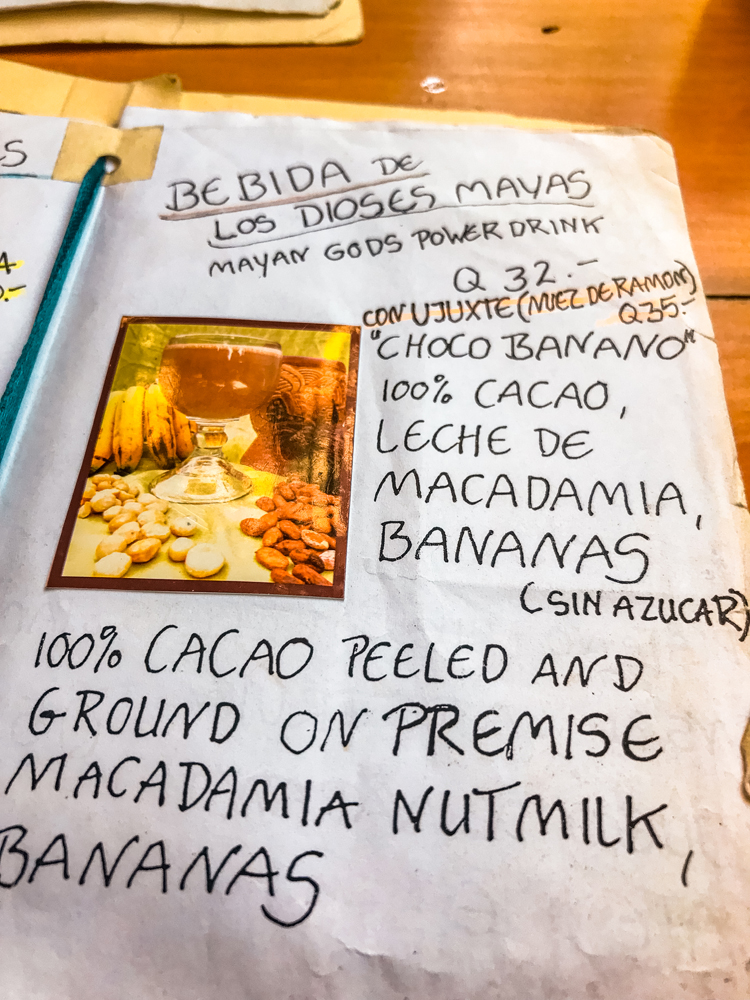 BEBIDA DE
LOS DIOSES MAYAS
MAYAN GODS POWER DRINK
Q 32.-
CON UJUXTE (NUEZ DE RAMON)
Q35.-
"CHOCO BANANO"
100% CACAO,
LECHE DE
MACADAMIA,
BANANAS
(SIN AZUCAR)
100% CACAO PEELED AND
GROUND ON PREMISE
MACADAMIA NUTMILK,
BANANAS